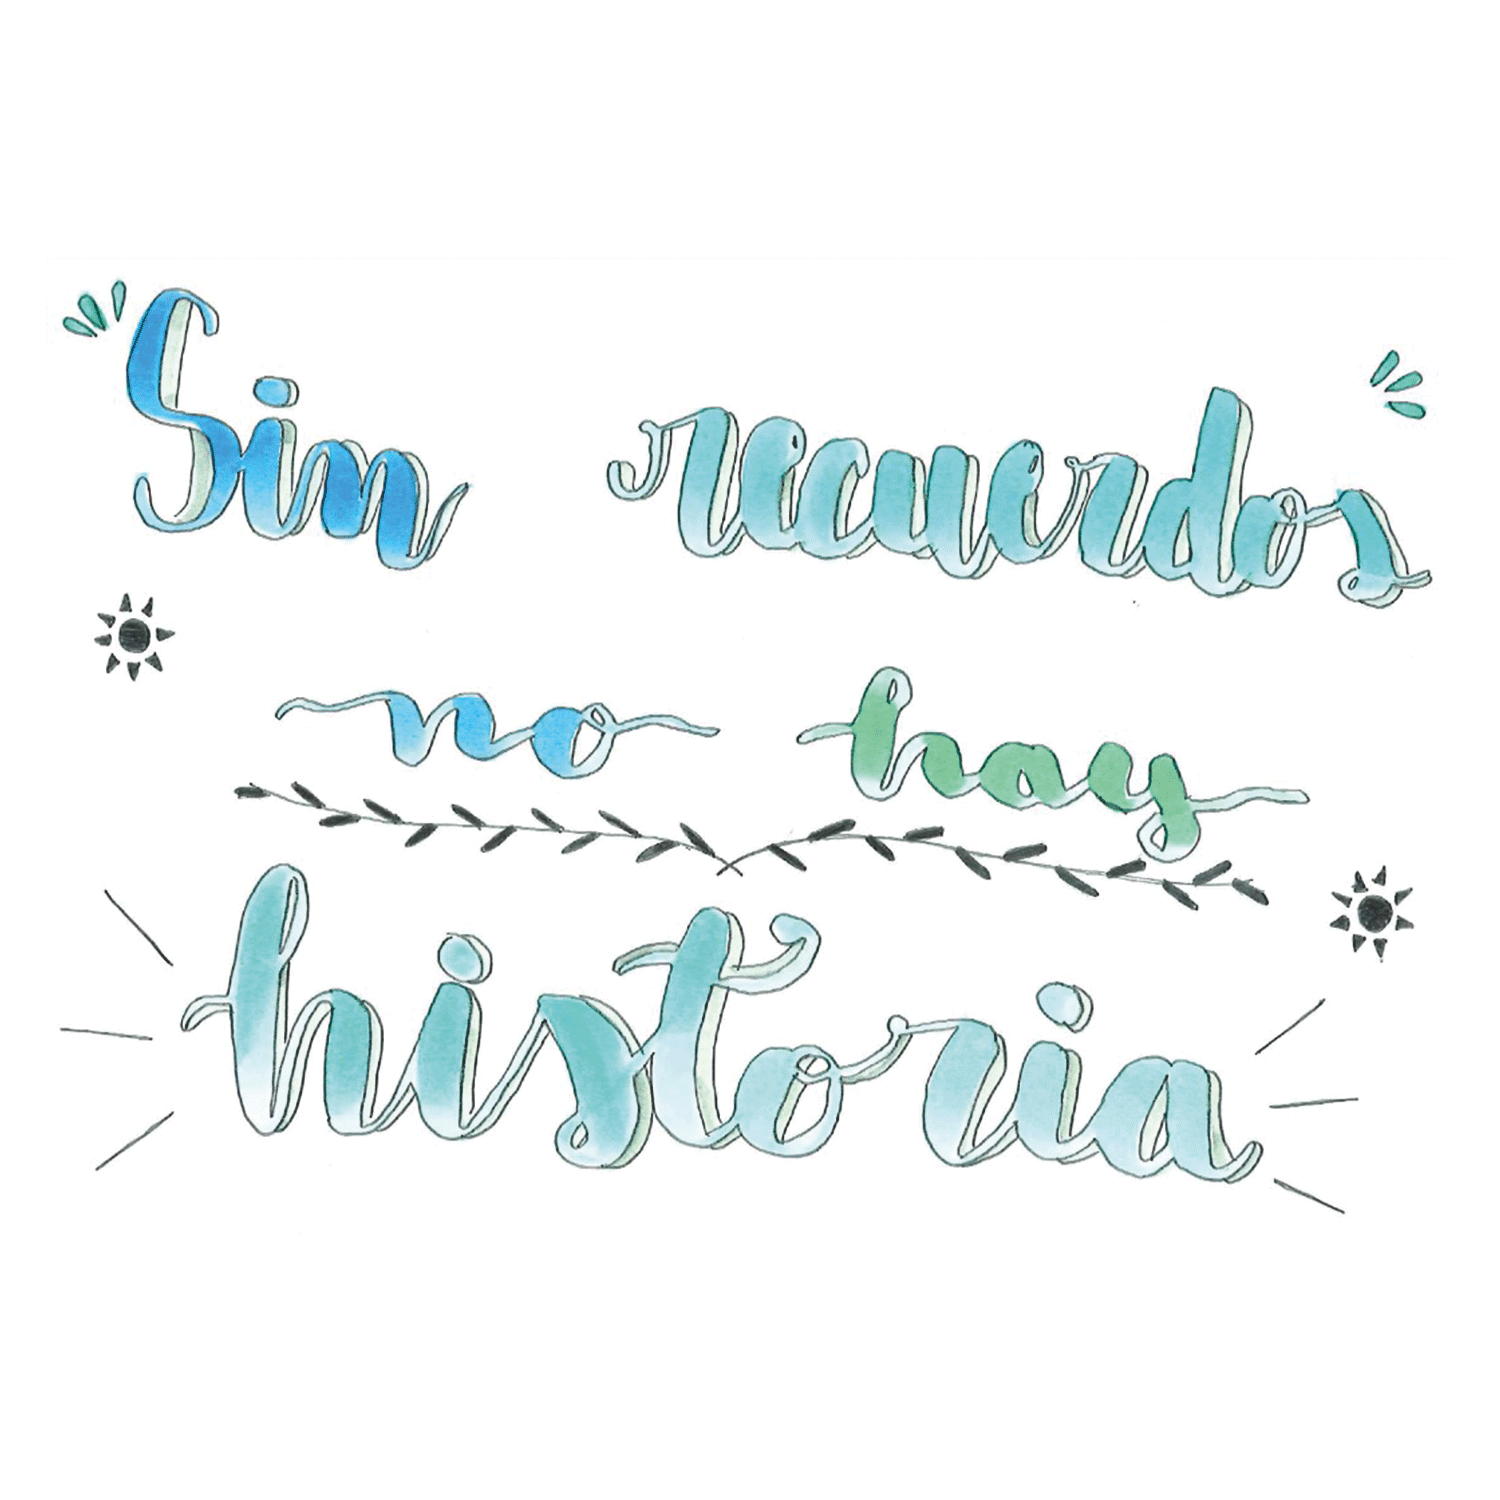 Sin recuerdos
no hay
historia